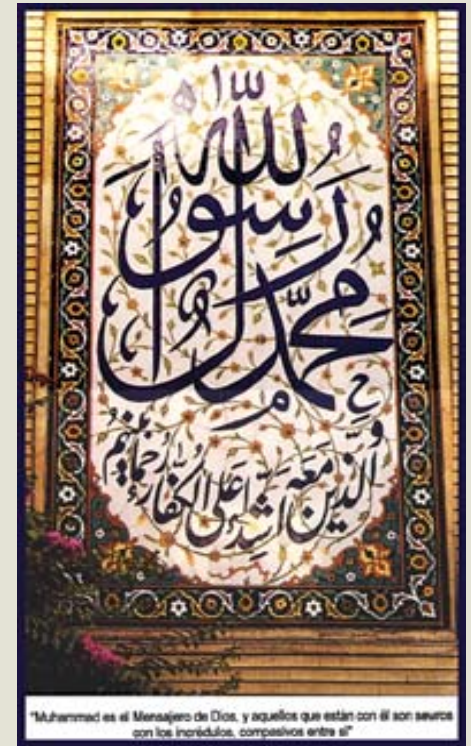 محمد رسول الله
والذين معه اشداء على الكفار رحماء بينهم
"Muhammad es el Mensajero de Dios, y aquellos que están con él son severos
con los incrédulos, compasivos entre sí"